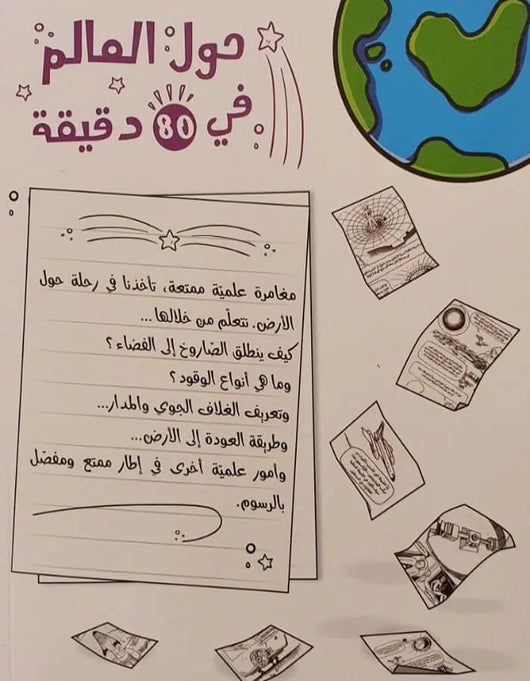 حول العالم
في 80 دقيقة
مغامرة علميّة ممتعة، تأخذنا في رحلة حول
الأرض. نتعلّم من خلالها...
كيف ينطلق الصّاروخ إلى الفضاء؟
وما هي أنواع الوقود؟
وتعريف الغلاف الجوي والمدار...
وطريقة العودة إلى الأرض...
وامور علميّة أخرى في إطار ممتع ومفصّل
بالرسوم.